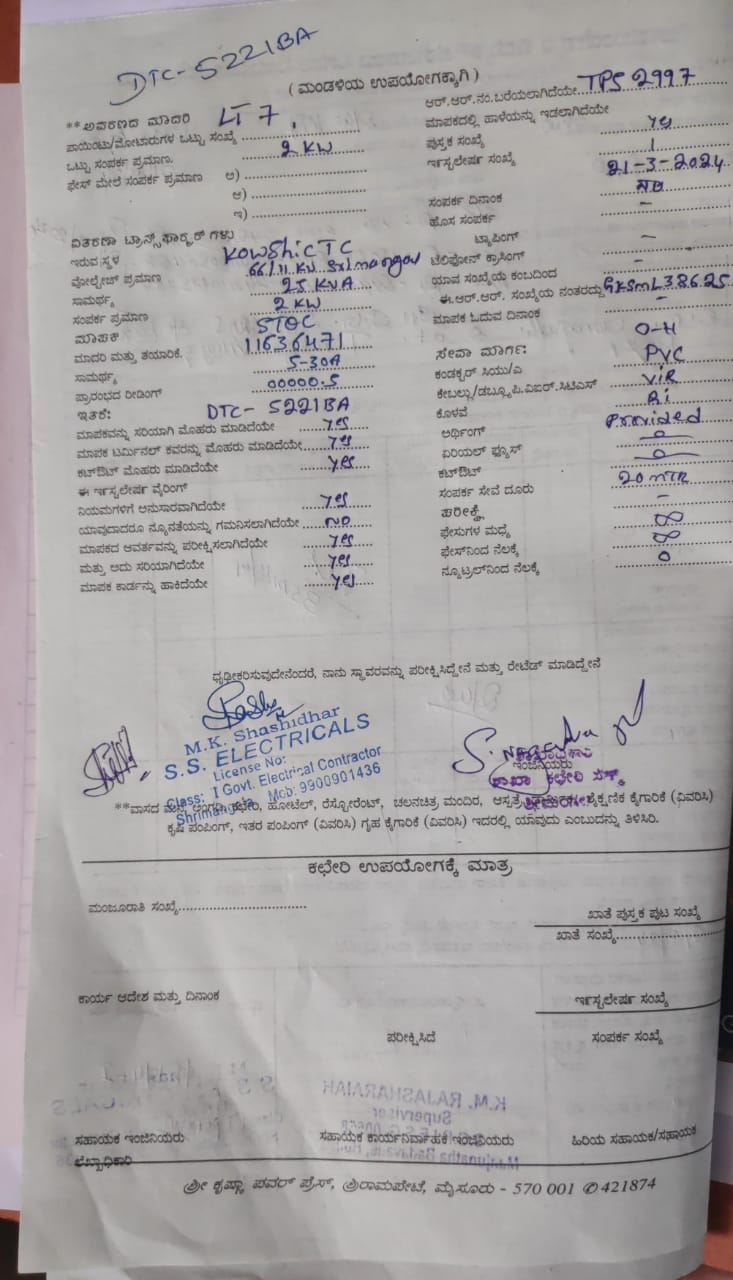 DTC-5221BA
( ಮಂಡಳಿಯ ಉಪಯೋಗಕ್ಕಾಗಿ )
**ಆವರಣದ ಮಾದರಿ LT 7,
ಪಾಯಿಂಟು/ಮೋಟಾರುಗಳ ಒಟ್ಟು ಸಂಖ್ಯೆ
ಒಟ್ಟು ಸಂಪರ್ಕ ಪ್ರಮಾಣ. 2 KW
ಫೇಸ್ ಮೇಲೆ ಸಂಪರ್ಕ ಪ್ರಮಾಣ ಅ)
ಆ)
ಇ)
ವಿತರಣಾ ಟ್ರಾನ್ಸ್‌ಫಾರ್ಮರ್ ಗಳು
ಇರುವ ಸ್ಥಳ KOWShiC TC
ವೋಲ್ಟೇಜ್ ಪ್ರಮಾಣ 66/11 KV Srimangal
ಸಾಮರ್ಥ್ಯ 25 KVA
ಸಂಪರ್ಕ ಪ್ರಮಾಣ 2 KW
ಮಾಪಕ
ಮಾದರಿ ಮತ್ತು ತಯಾರಿಕೆ. 11636471
ಸಾಮರ್ಥ್ಯ 5-30A
ಪ್ರಾರಂಭದ ರೀಡಿಂಗ್ 00000.5
ಇತರೆ: DTC- 5221BA
ಮಾಪಕವನ್ನು ಸರಿಯಾಗಿ ಮೊಹರು ಮಾಡಿದೆಯೇ yes
ಮಾಪಕ ಟರ್ಮಿನಲ್ ಕವರನ್ನು ಮೊಹರು ಮಾಡಿದೆಯೇ yes
ಕಟ್‌ಔಟ್ ಮೊಹರು ಮಾಡಿದೆಯೇ yes
ಈ ಇನ್ಸ್ಟಲೇಷನ್ ವೈರಿಂಗ್
ನಿಯಮಗಳಿಗೆ ಅನುಸಾರವಾಗಿದೆಯೇ yes
ಯಾವುದಾದರೂ ನ್ಯೂನತೆಯನ್ನು ಗಮನಿಸಲಾಗಿದೆಯೇ NO
ಮಾಪಕದ ಆವರ್ತವನ್ನು ಪರೀಕ್ಷಿಸಲಾಗಿದೆಯೇ yes
ಮತ್ತು ಅದು ಸರಿಯಾಗಿದೆಯೇ yes
ಮಾಪಕ ಕಾರ್ಡನ್ನು ಹಾಕಿದೆಯೇ yes
ಆರ್.ಆರ್.ನಂ.ಬರೆಯಲಾಗಿದೆಯೇ TPS 2997
ಮಾಪಕದಲ್ಲಿ ಹಾಳೆಯನ್ನು ಇಡಲಾಗಿದೆಯೇ
ಪುಸ್ತಕ ಸಂಖ್ಯೆ yes
ಇನ್ಸ್ಟಲೇಷನ್ ಸಂಖ್ಯೆ 1
21-3-2024
ಸಂಪರ್ಕ ದಿನಾಂಕ NO
ಹೊಸ ಸಂಪರ್ಕ -
ಟ್ಯಾಪಿಂಗ್ -
ಟೆಲಿಫೋನ್ ಕ್ರಾಸಿಂಗ್ -
ಯಾವ ಸಂಖ್ಯೆಯ ಕಂಬದಿಂದ
ಈ.ಆರ್.ಆರ್. ಸಂಖ್ಯೆಯ ನಂತರದ್ದು GKSML38625
ಮಾಪಕ ಓದುವ ದಿನಾಂಕ -
ಸೇವಾ ಮಾರ್ಗ: O-H
ಕಂಡಕ್ಟರ್ ಸಿಯು/ಎ PVC
ಕೇಬಲ್ಲು/ಡಬ್ಲ್ಯೂ.ಪಿ.ಐಆರ್.ಸಿಟಿಎಸ್ VIR
ಕೊಳವೆ
ಅರ್ಥಿಂಗ್ Provided
ಏರಿಯಲ್ ಫ್ಯೂಸ್ 0
ಕಟ್‌ಔಟ್ 0
ಸಂಪರ್ಕ ಸೇವೆ ದೂರು 20 MTR
ಪರೀಕ್ಷೆ -
ಫೇಸುಗಳ ಮಧ್ಯೆ ∞
ಫೇಸ್‌ನಿಂದ ನೆಲಕ್ಕೆ ∞
ನ್ಯೂಟ್ರಲ್‌ನಿಂದ ನೆಲಕ್ಕೆ 0
ಧೃಢೀಕರಿಸುವುದೇನೆಂದರೆ, ನಾನು ಸ್ಥಾವರವನ್ನು ಪರೀಕ್ಷಿಸಿದ್ದೇನೆ ಮತ್ತು ರೇಟೆಡ್ ಮಾಡಿದ್ದೇನೆ
M.K. Shashidhar
S.S. ELECTRICALS
License No:
Class: 1 Govt. Electrical Contractor
Shrimangala Mob: 9900901436
ಇಂಜಿನಿಯರು
ಶಾಖಾ ಕಛೇರಿ
**ವಾಸದ ಮನೆ, ಅಂಗಡಿ, ಕಛೇರಿ, ಹೋಟೆಲ್, ರೆಸ್ಟೋರೆಂಟ್, ಚಲನಚಿತ್ರ ಮಂದಿರ, ಆಸ್ಪತ್ರೆ ಶೈಕ್ಷಣಿಕ ಕೈಗಾರಿಕೆ (ವಿವರಿಸಿ)
ಕೃಷಿ ಪಂಪಿಂಗ್, ಇತರ ಪಂಪಿಂಗ್ (ವಿವರಿಸಿ) ಗೃಹ ಕೈಗಾರಿಕೆ (ವಿವರಿಸಿ) ಇದರಲ್ಲಿ ಯಾವುದು ಎಂಬುದನ್ನು ತಿಳಿಸಿರಿ.
ಕಛೇರಿ ಉಪಯೋಗಕ್ಕೆ ಮಾತ್ರ
ಮಂಜೂರಾತಿ ಸಂಖ್ಯೆ
ಖಾತೆ ಪುಸ್ತಕ ಪುಟ ಸಂಖ್ಯೆ
ಖಾತೆ ಸಂಖ್ಯೆ
ಕಾರ್ಯ ಆದೇಶ ಮತ್ತು ದಿನಾಂಕ
ಇನ್ಸ್ಟಲೇಷನ್ ಸಂಖ್ಯೆ
ಪರೀಕ್ಷಿಸಿದೆ
ಸಂಪರ್ಕ ಸಂಖ್ಯೆ
ಸಹಾಯಕ ಇಂಜಿನಿಯರು ಸಹಾಯಕ ಕಾರ್ಯನಿರ್ವಾಹಕ ಇಂಜಿನಿಯರು ಹಿರಿಯ ಸಹಾಯಕ/ಸಹಾಯಕ
ಲೆಖ್ಖಾಧಿಕಾರಿ
ಶ್ರೀ ಕೃಷ್ಣಾ ಪವರ್ ಪ್ರೆಸ್, ಶ್ರೀರಾಮಪೇಟೆ, ಮೈಸೂರು - 570 001 ✆ 421874